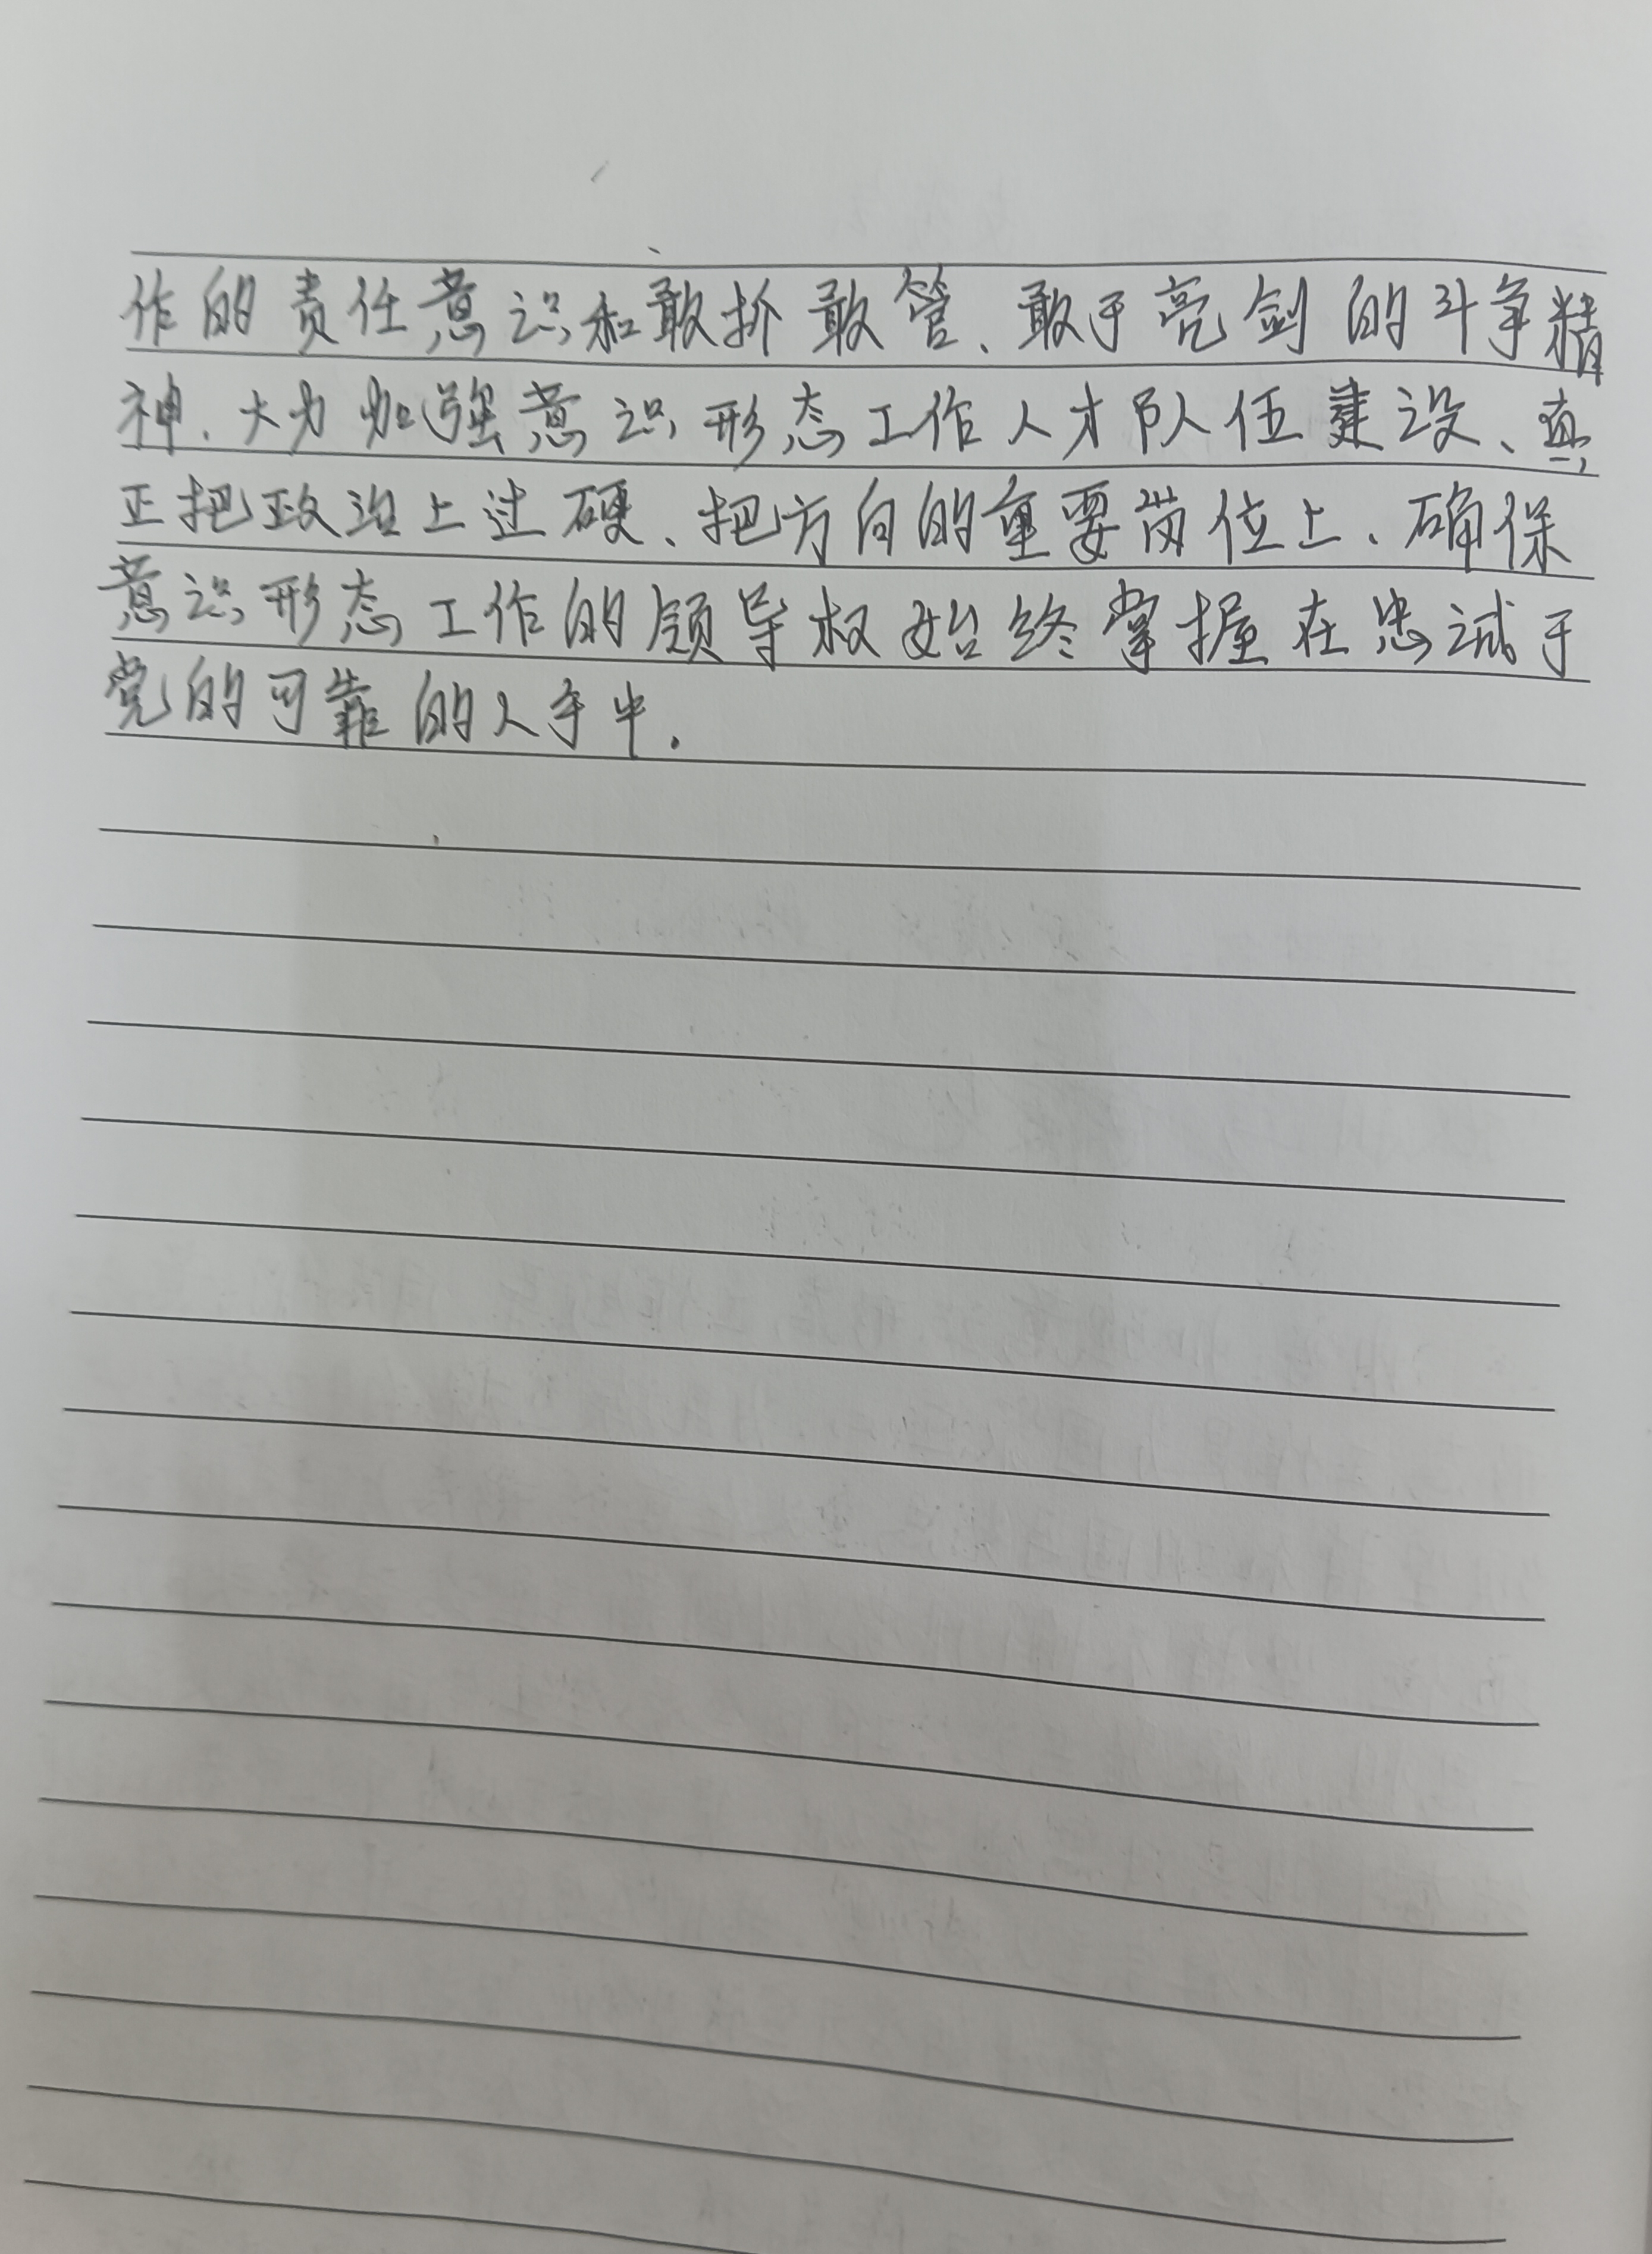 作的责任意识和敢抓敢管、敢于亮剑的斗争精
神.大力加强意识形态工作人才队伍建设、真
正把政治上过硬、把方向的重要岗位上、确保
意识形态工作的领导权始终掌握在忠诚于
党的可靠的人手中.